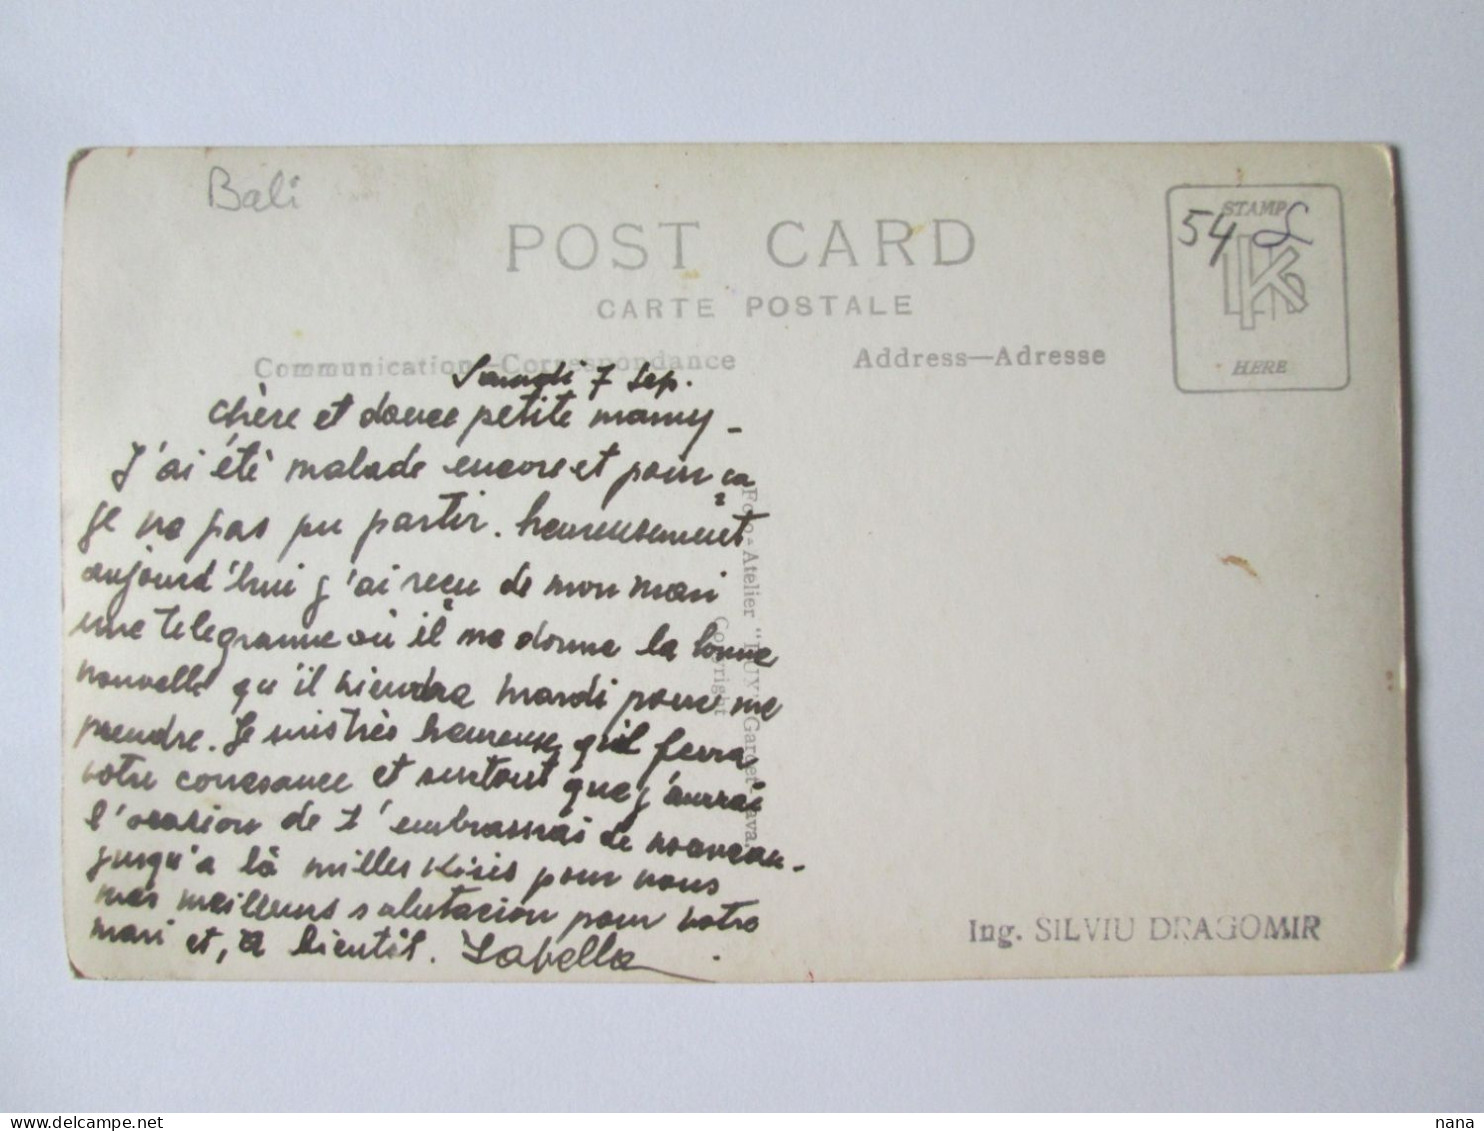 Bali
POST CARD
CARTE POSTALE
STAMP
54
LKG
HERE
Communication—Correspondance
Address—Adresse
Samedi 7 Sep.
chère et douce petite mamy –
J'ai été malade encore et pour ça
je ne pas pu partir. heureusement
aujourd'hui j'ai reçu de mon mari
une telegramme où il me donne la bonne
nouvelle qu'il viendra mardi pour me
prendre. Je suis très heureuse qu'il ferra
votre conesance et surtout que j'aurrai
l'ocasion de t'embrassai de nouveau –
jusqu'a là milles kisis pour vous
mes meilleurs salutacion pour votre
mari et, a bientôt. Isabella
Foto-Atelier "LUX" Garoet Java.
Copyright
Ing. SILVIU DRAGOMIR
nana